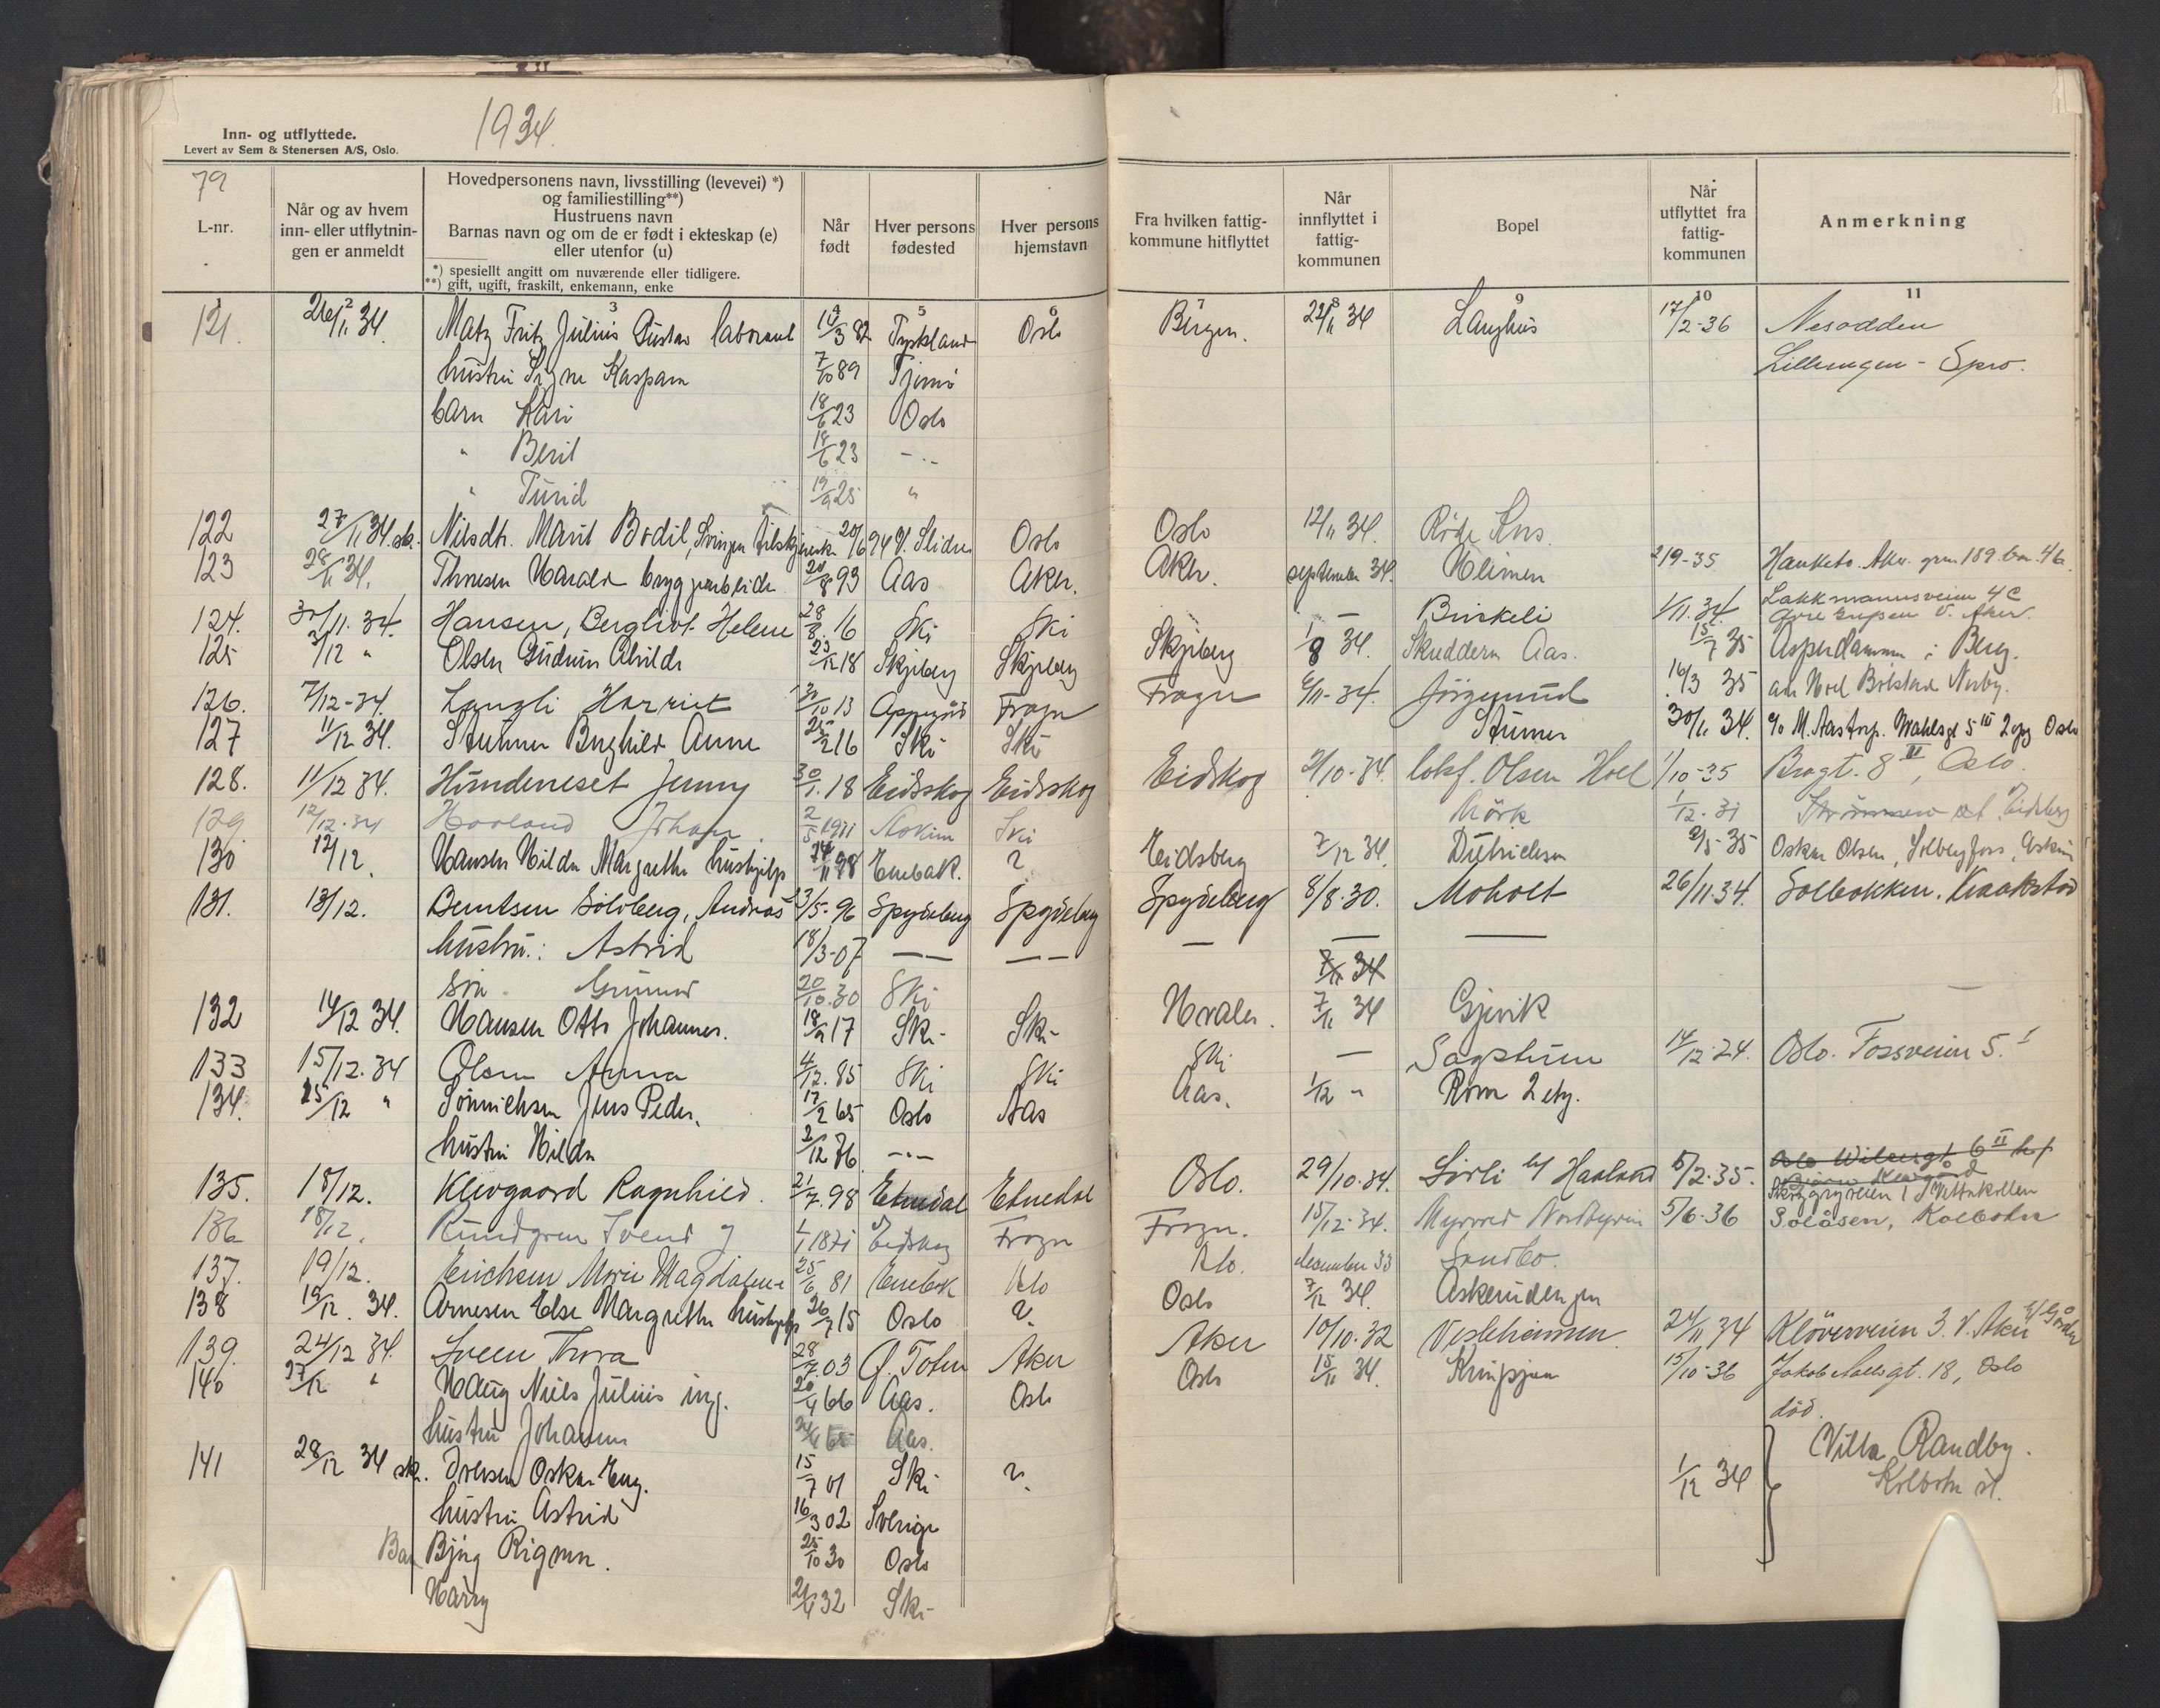 1934.
Inn- og utflyttede.
Levert av Sem & Stenersen A/S, Oslo.
79
L-nr.
Når og av hvem inn- eller utflytnin- gen er anmeldt
Hovedpersonens navn, livsstilling (levevei) *)
og familiestilling**)
Hustruens navn
Barnas navn og om de er født i ekteskap (e)
eller utenfor (u)
*) spesiellt angitt om nuværende eller tidligere.
**) gift, ugift, fraskilt, enkemann, enke
Når født
Hver persons fødested
Hver persons hjemstavn
Fra hvilken fattig- kommune hitflyttet
Når innflyttet i fattig- kommunen
Bopel
Når utflyttet fra fattig- kommunen
Anmerkning
2 3 4 5 6 7 8 9 10 11
121. 26/11 34. Matz Fritz Julius Gustav laborant 14/3 82 Tyskland Oslo Bergen. 22/11 34 Langhus 17/2-36 Nesodden
hustru Signe Kaspara 7/10 89 Tjömö Spro.
barn Kari 18/6 23 Oslo
" Berit 18/6 23 - " -
" Turid 19/9 25 "
122 27/11 34. sk. Nilsdtr. Marit Bodil, 20/6 94 V. Slidre Oslo Oslo 12/11 34. Röde Kors.
123 28/11 34. Thoresen Harald bryggearbeider 20/8 93 Aas Aker. Aker. september 34. 2/9-35 Hauketo. Aker. grn 189. bn. 46.
124. 30/11. 34. Hansen, Bergliot Helene 28/8. 16 Ski Ski — Birkeli 1/11. 34. Lakkmannsveien 4 C V. Aker.
125 3/12 " Olsen Gudrun Alvilde 23/12 18 Skjeberg Skjeberg Skjeberg 1/8 34. Skuddern Aas. 15/7 35 Asperdammen i Berg.
126. 7/12-34. Langli Harriet 30/10 13 Oppegård Frogn Frogn 6/11-34. Jörgenrud 16/3 35
127 11/12 34. Stumer Borghild Anne 25/2 16 Ski Ski Stumer 30/11. 34. c/o M. Aastorp. 5 III 2 opg Oslo
128. 11/12 34. Hundeneset Jenny 30/1. 18 Eidsskog Eidsskog Eidskog 2/10-34. Olsen Holl 1/10-35 8 II, Oslo.
129. 12/12-34 Haaland Johan. 2/5 1911 Askim Ski Mörk 1/12-31 Strömmen Eidsberg
130 12/12. Hansen Hilda Margrethe hushjelp 14/11 98 Enebak. ? Eidsberg 7/12 34. Didrichsen 2/5-35 Oskar Olsen, Solbergfoss, Askim
131. 13/12. Berntsen Solberg, Andreas 23/5-96 Spydeberg Spydeberg Spydeberg 8/8.30. Moholt 26/11.34. Solbakken. Kraakstad
hustru: Astrid 18/3-07 — — — — — — —
7/11 34
sön Gunnar 20/10.30 Ski
132 14/12 34. Hansen Otto Johannes. 18/9 17 Ski Ski Hvaler. 7/11 34 Gjevik
133 15/12.34 Olsen Anna 4/12.85 Ski Ski Ski — Sagstuen 14/12.24. Oslo. Fossveien 5. I
134. 15/12 " Sönnichsen Jens Peder. 17/2 65 Oslo Aas Aas. 1/12 " Rom 2 etg.
hustru Hilda 2/12 76 - " -
135. 18/12. Klevgaard Ragnhild. 21/7.98 Etnedal Etnedal Oslo. 29/10.34. Sörli b/ Haaland 5/2.35. Oslo 6 II
136 18/12. Rundgren Svend J 1/1 1871 Eidskog Frogn Frogn. 15/12-34. Myrvold Nordbyveien 5/6-36 Solåsen, Kolbotn
137. 19/12. Erichsen Marie Magdalene 25/6 81 Enebak Oslo Oslo. desember 33 Sandbo.
138 19/12. 34. Arnesen Else Margrethe hushjelp 26/7 15 Oslo ? Oslo 7/12 34. Askerudengen
139. 24/12 34. Sveen Thora 28/7.03 Ö. Toten Aker Aker 10/10.32 Vesleheimen 24/11 34 Klöverveien 3. V. Aker
140 27/12 " Haug Niels Julius ing. 20/4 66 Aas. Oslo Oslo 15/11 34. Kringsjaa 15/10-36 Jakob Aallsgt. 18, Oslo
hustru Johanne Aas. död.
141 28/12 34 sk. Oskar Eng. 15/7 01 Ski ? 1/12 34 Villa Randby.
Kolbotn st.
hustru Astrid 16/3 02 Sverige
Bar Björg Rigmor. 25/10 30 Oslo
Harry 21/4 32 Ski